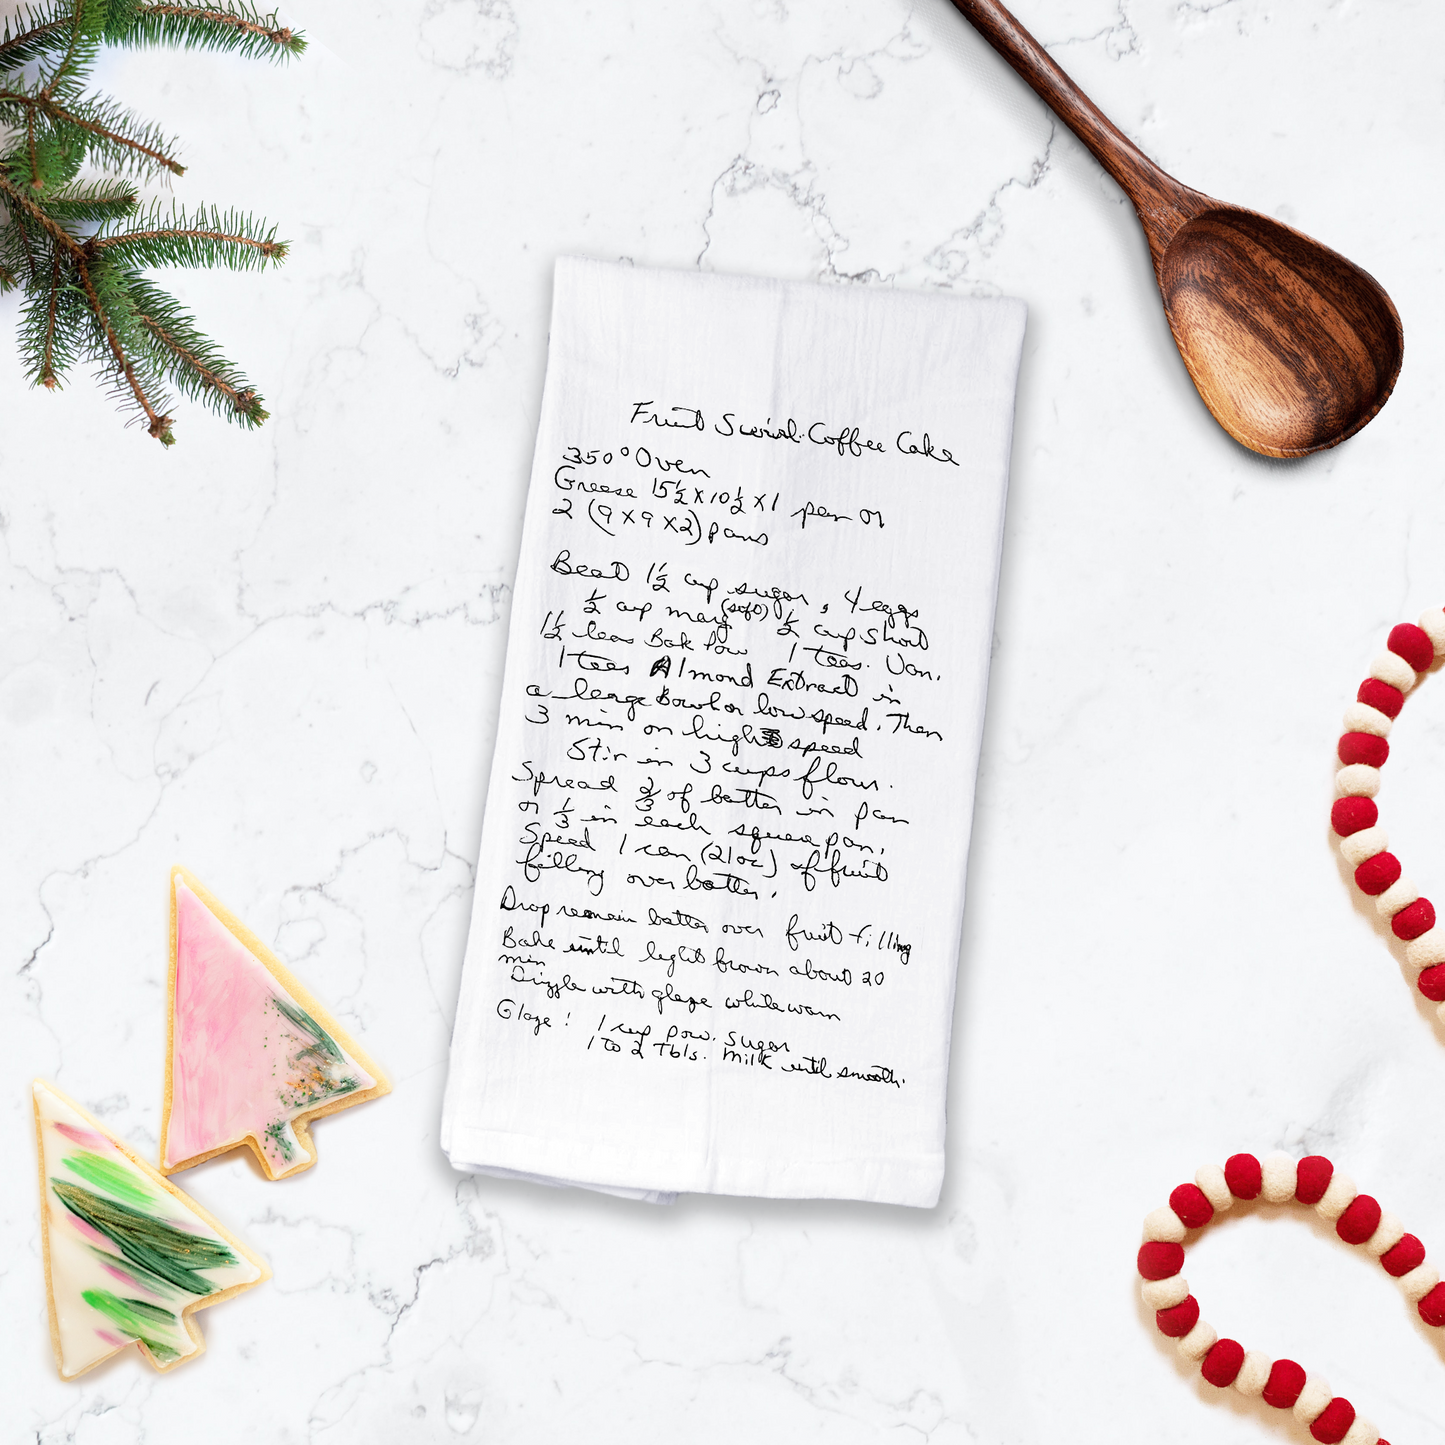 Fruit Swirl Coffee Cake
350° Oven
Grease 15½ x 10½ x 1 pan or
2 (9 x 9 x 2) pans
Beat 1½ cup sugar, 4 eggs
½ cup marg (soft) ½ cup short
1½ teas Bak Pow 1 teas. Van.
1 teas Almond Extract in
a large Bowl on low speed. Then
3 min on high speed
Stir in 3 cups flour.
Spread ⅔ of batter in pan
or ⅓ in each square pan.
Spead 1 can (21 oz) of fruit
filling over batter.
Drop remain batter over fruit filling
Bake until light brown about 30
min
Dizzle with glaze while warm
Glaze: 1 cup pow. sugar
1 to 2 Tbls. Milk until smooth.